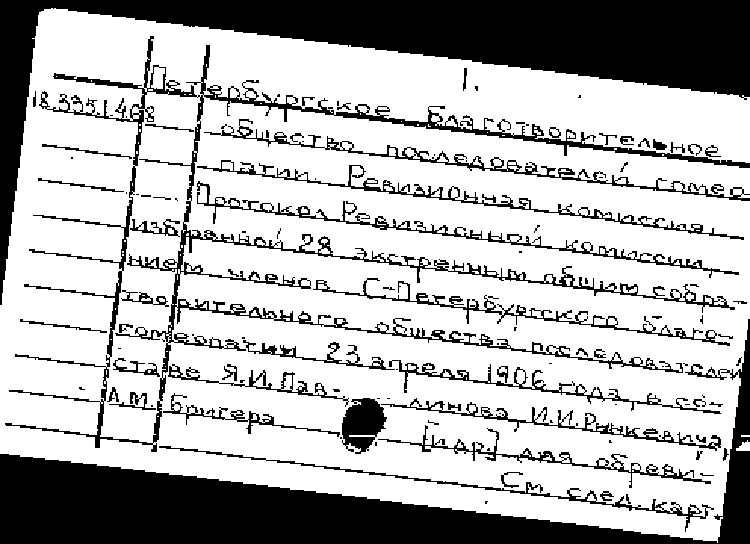 1.
Петербургское благотворительное
18.335.1.468
общество последователей гомео-
патии. Ревизионная комиссия.
Протокол Ревизионной комиссии,
избранной 28 экстренным общим собра-
нием членов С-Петербургского благо-
творительного общества последователей
гомеопатии 23 апреля 1906 года, в со-
ставе Я.И. Пав- линова, И.И. Рынкевича,
А.М. Бригера [и др.] для обреви-
См. след. карт.